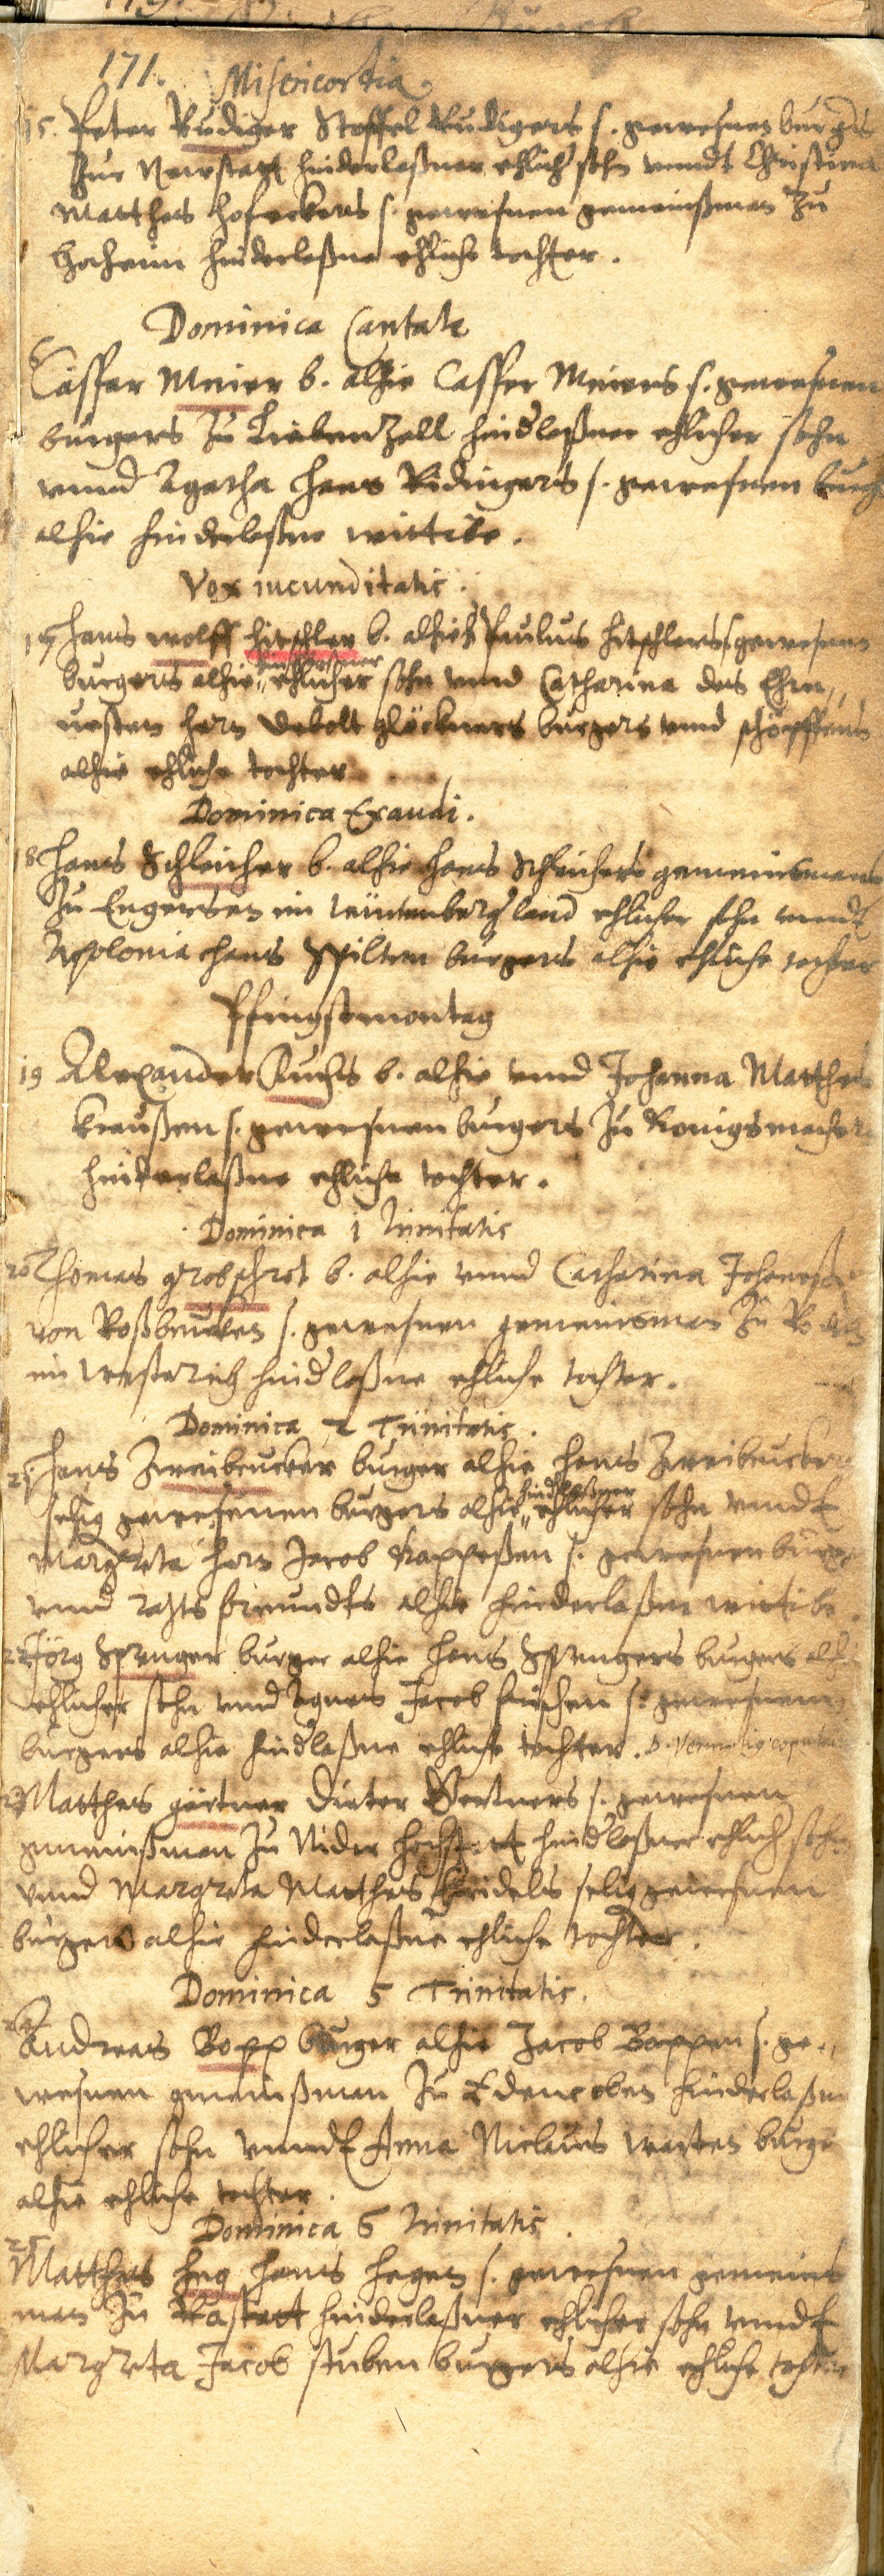 171. Misericordia
15. Peter Rudiger Stoffel Rudigers s. gewesnen burgers
zur Newstatt hinderlaßner ehlicher sohn vnndt Christina
Matthes Hofeckers s. gewesnen gemeinßman zu
hinderlaßne ehliche tochter.
Dominica Cantate
Casper Meier b. alhie Casper Meiers s. gewesnen
burgers zu Liebenzell hinderlaßner ehlicher sohn
vnnd Agatha Hans Ridingers s. gewesnen burg
alhie hinderlaßne wittibe.
Vox iucunditatis.
17 Hans Wolff Hitschler b. alhie Paulus Hitschlers s. gewesnen
burgers alhie hinderlaßner ehlicher sohn vnnd Catharina des Ehrn„
vesten hern Debolt Glöckners burgers vnnd schöpffens
alhie ehliche tochter
Dominica Exaudi.
18 Hans Schleicher b. alhie Hans Schleichers gemeinsmans
zu im land ehlicher sohn vnndt
Apolonia Hans burgers alhie ehliche tochter
Pfingstmontag
19 Alexander Kuchs b. alhie vnnd Johanna Matthes
Kraußen s. gewesnen burgers zu Konigsmachern
hinderlaßne ehliche tochter.
Dominica 1 Trinitatis
20 Thomas Grobschrot b. alhie vnnd Catharina
von Roßbrucken s. gewesnen gemeinsman zu
im Westerich hindlaßne ehliche tochter.
Dominica 2 Trinitatis.
21. Hans Zweibrucker burger alhie Hans Zweibrucker
selig gewesenen burgers alhie hindlaßner ehlicher sohn vnndt
Margreta hern Jacob Kappeßen s. gewesnen burg
vnnd rahts freundts alhie hinderlaßne wittibe.
22 Jörg Sprenger burger alhie Hans Sprengers burgers alhie
ehlicher sohn vnnd Agnes Jacob s. gewesnen
burgers alhie hindlaßne ehliche tochter.
23 Matthes gärtner Dieter Gertners s. gewesnen
gmeinßman zu Nider Hochstatt hindlaßner ehlich sohn
vnnd Margreta Matthes Heidels selig gewesnen
burgers alhie hinderlaßne ehliche tochter.
Dominica 5 Trinitatis.
24 Andreas Bopp burger alhie Jacob Boppen s. ge„
wesnen gmeinßman zu Edencoben hinderlaßner
ehlicher sohn vnndt Anna Niclaus burger
alhie ehliche tochter.
Dominica 6 Trinitatis.
25 Matthes Heg Hans Hegen s. gewesnen gemeins
man zu Rastatt hinderlaßner ehlicher sohn vnndt
Margreta Jacob Stuben burgers alhie ehliche tochter